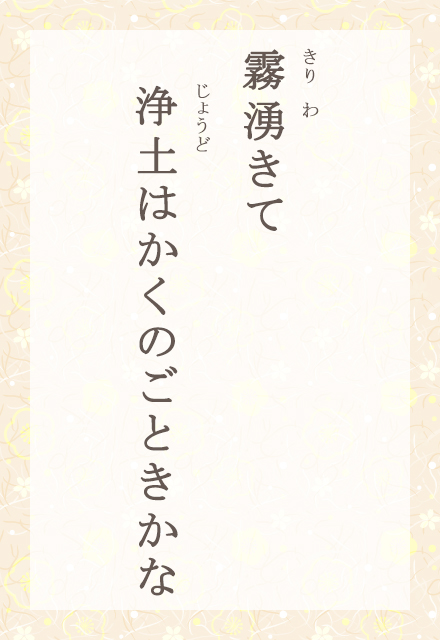 きり わ
霧湧きて
じょうど
浄土はかくのごときかな